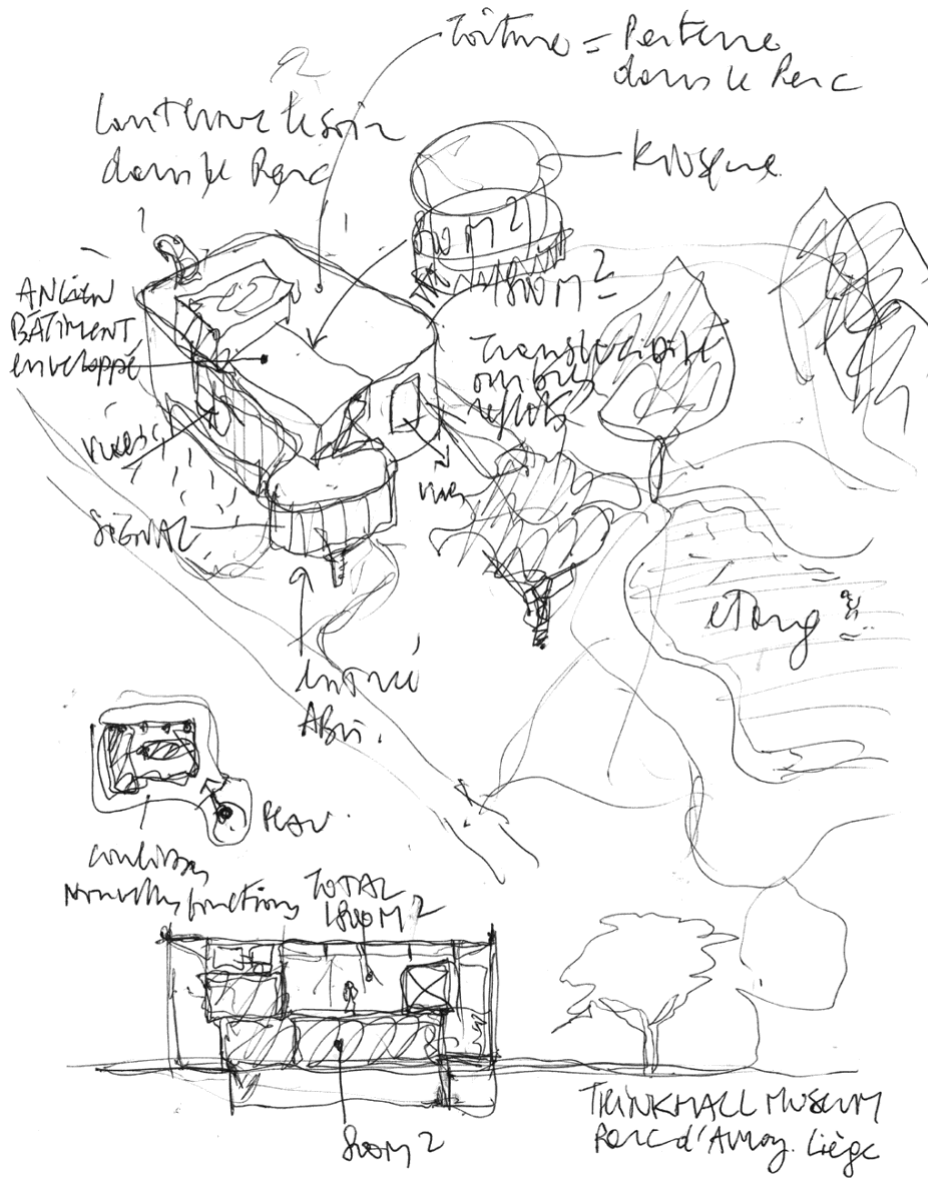 Toiture = Parterre
dans le Parc
Lanterne le soir
dans le Parc
Kiosque
800 M2
1800 M2
ANCIEN
BÂTIMENT
enveloppé
Translucidité
ombres
reflets
vues
vues
SIGNAL
étang
entrée
Abri.
PLAN.
coulisses
nouvelles fonctions
TOTAL
1800 M2
800 M2
TRINKHALL MUSEUM
Parc d'Avroy. Liège